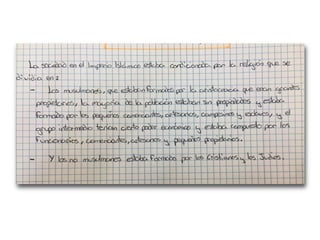 La sociedad en el Imperio Islámico estaba condicionada por la religión que se
dividía en 2
- Los musulmanes, que estaban formados por la aristocracia que eran grandes
propietarios, la mayoría de la población estaban sin propiedades y estaba
formada por los pequeños comerciantes, artesanos, campesinos y esclavos, y el
grupo intermedio tenían cierto poder económico y estaba compuesto por los
funcionarios, comerciantes, artesanos y pequeños propietarios.
- Y los no musulmanes estaba formado por los Cristianos y los Judíos.